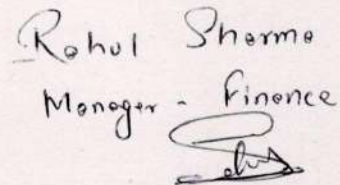 Rahul Sharma
Manager - Finance